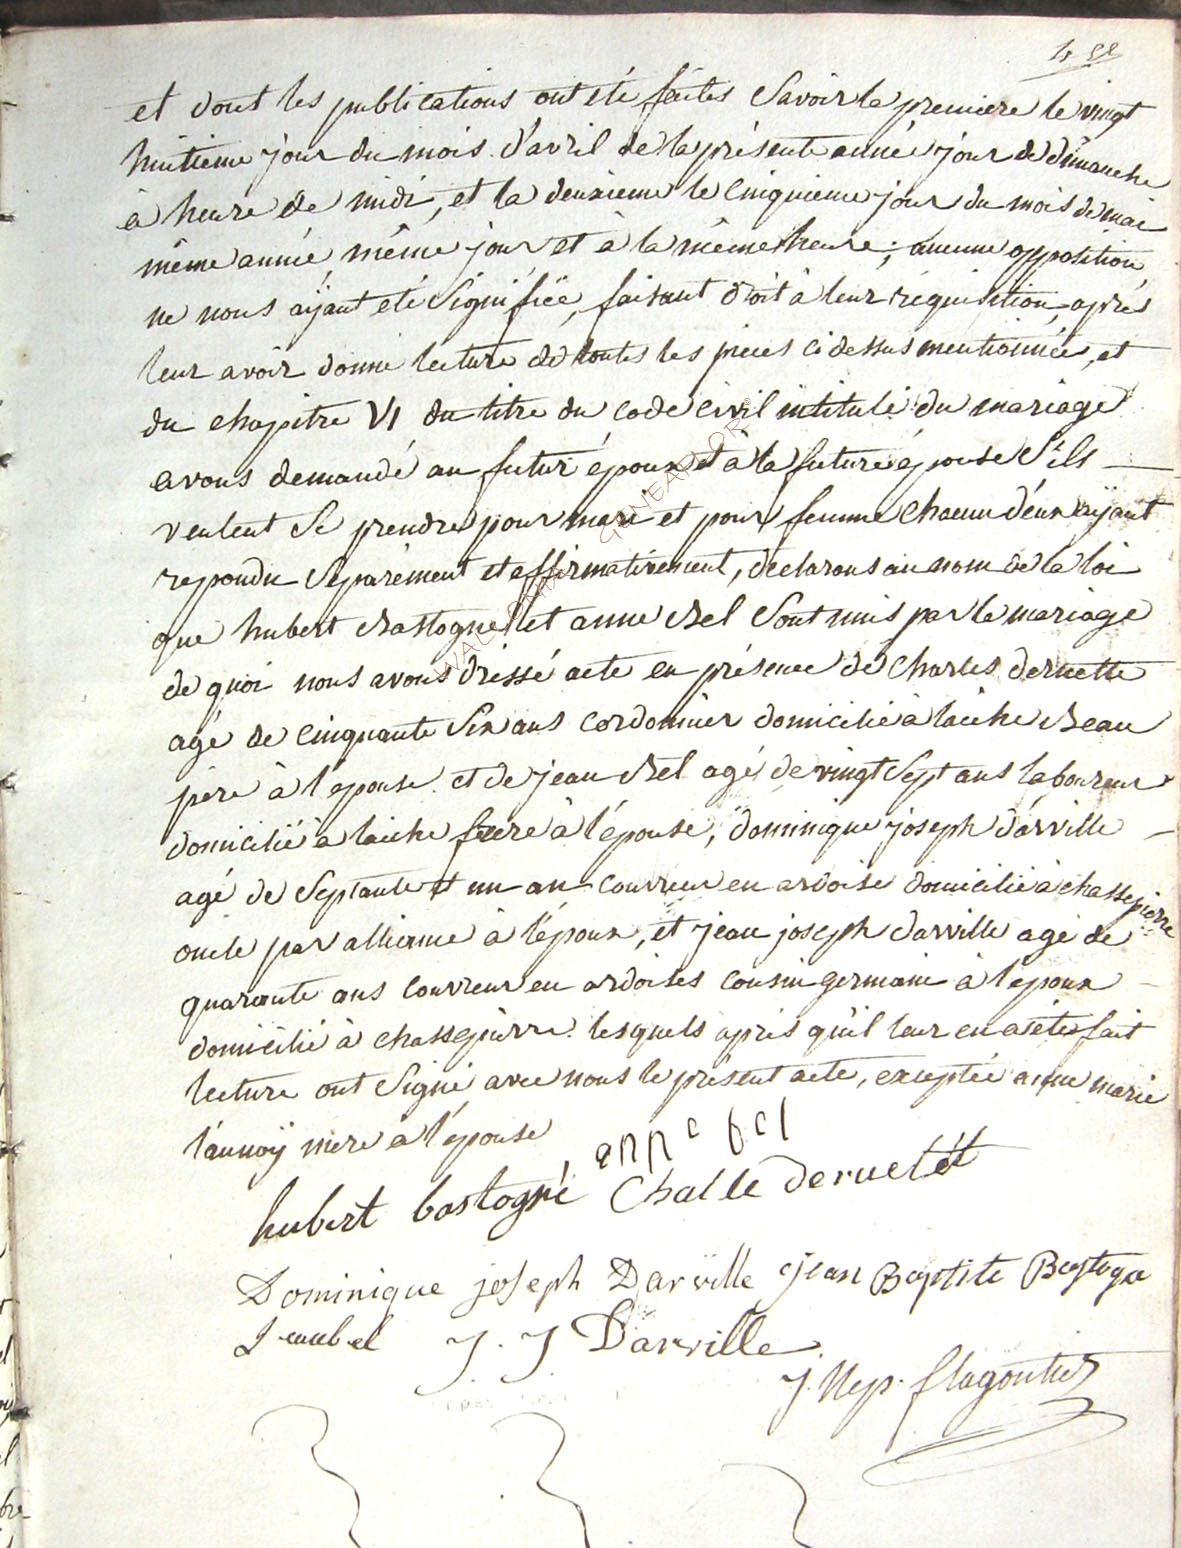 et dont les publications ont été faites Savoir la premiere le vingt
huitieme jour du mois d'avril de la présente année jour de dimanche
à heure de midi, et la deuxieme le cinquieme jour du mois de mai
même année, même jour et à la même heure; aucune opposition
ne nous aÿant eté Signifiée, faisant droit à leur réquisition, après
leur avoir donné lecture de toutes les pieces ci dessus mentionnée, et
du chapitre VI du titre du code civil intitulé du mariage
avons demandé au futur époux et à la future épouse S'ils
veulent Se prendre pour mari et pour femme chacun d'eux aÿant
repondu Separément et affirmativement, declarons au nom de la loi
que hubert Bastogne et anne Bel Sont unis par le mariage
de quoi nous avons dressé acte en présence de Charles deruette
agé de cinquante Six ans cordonnier domicilié à laiche Beau
père à l'epouse et de jean Bel agé de vingt Sept ans laboureur
domicilié à laiche frere à l'épouse, dominique joseph darville
agé de Septante et un an couvreur en ardoise domicilié à chassepierre
oncle par alliance à l'époux, et jean joseph darville agé de
quarante ans couvreur en ardoises cousin germain à l'epoux
domicilié à chassepierre. lesquels après qu'il leur en a eté fait
lecture ont Signé avec nous le présent acte, exceptée anne marie
launoÿ mere à l'épouse
anne bel
hubert bastogne Challe deruetét
Dominique joseph Darville Jean Baptiste Bastogne
J. J Darville
J. Nep. flagontier
WALLONIA GENEALOR